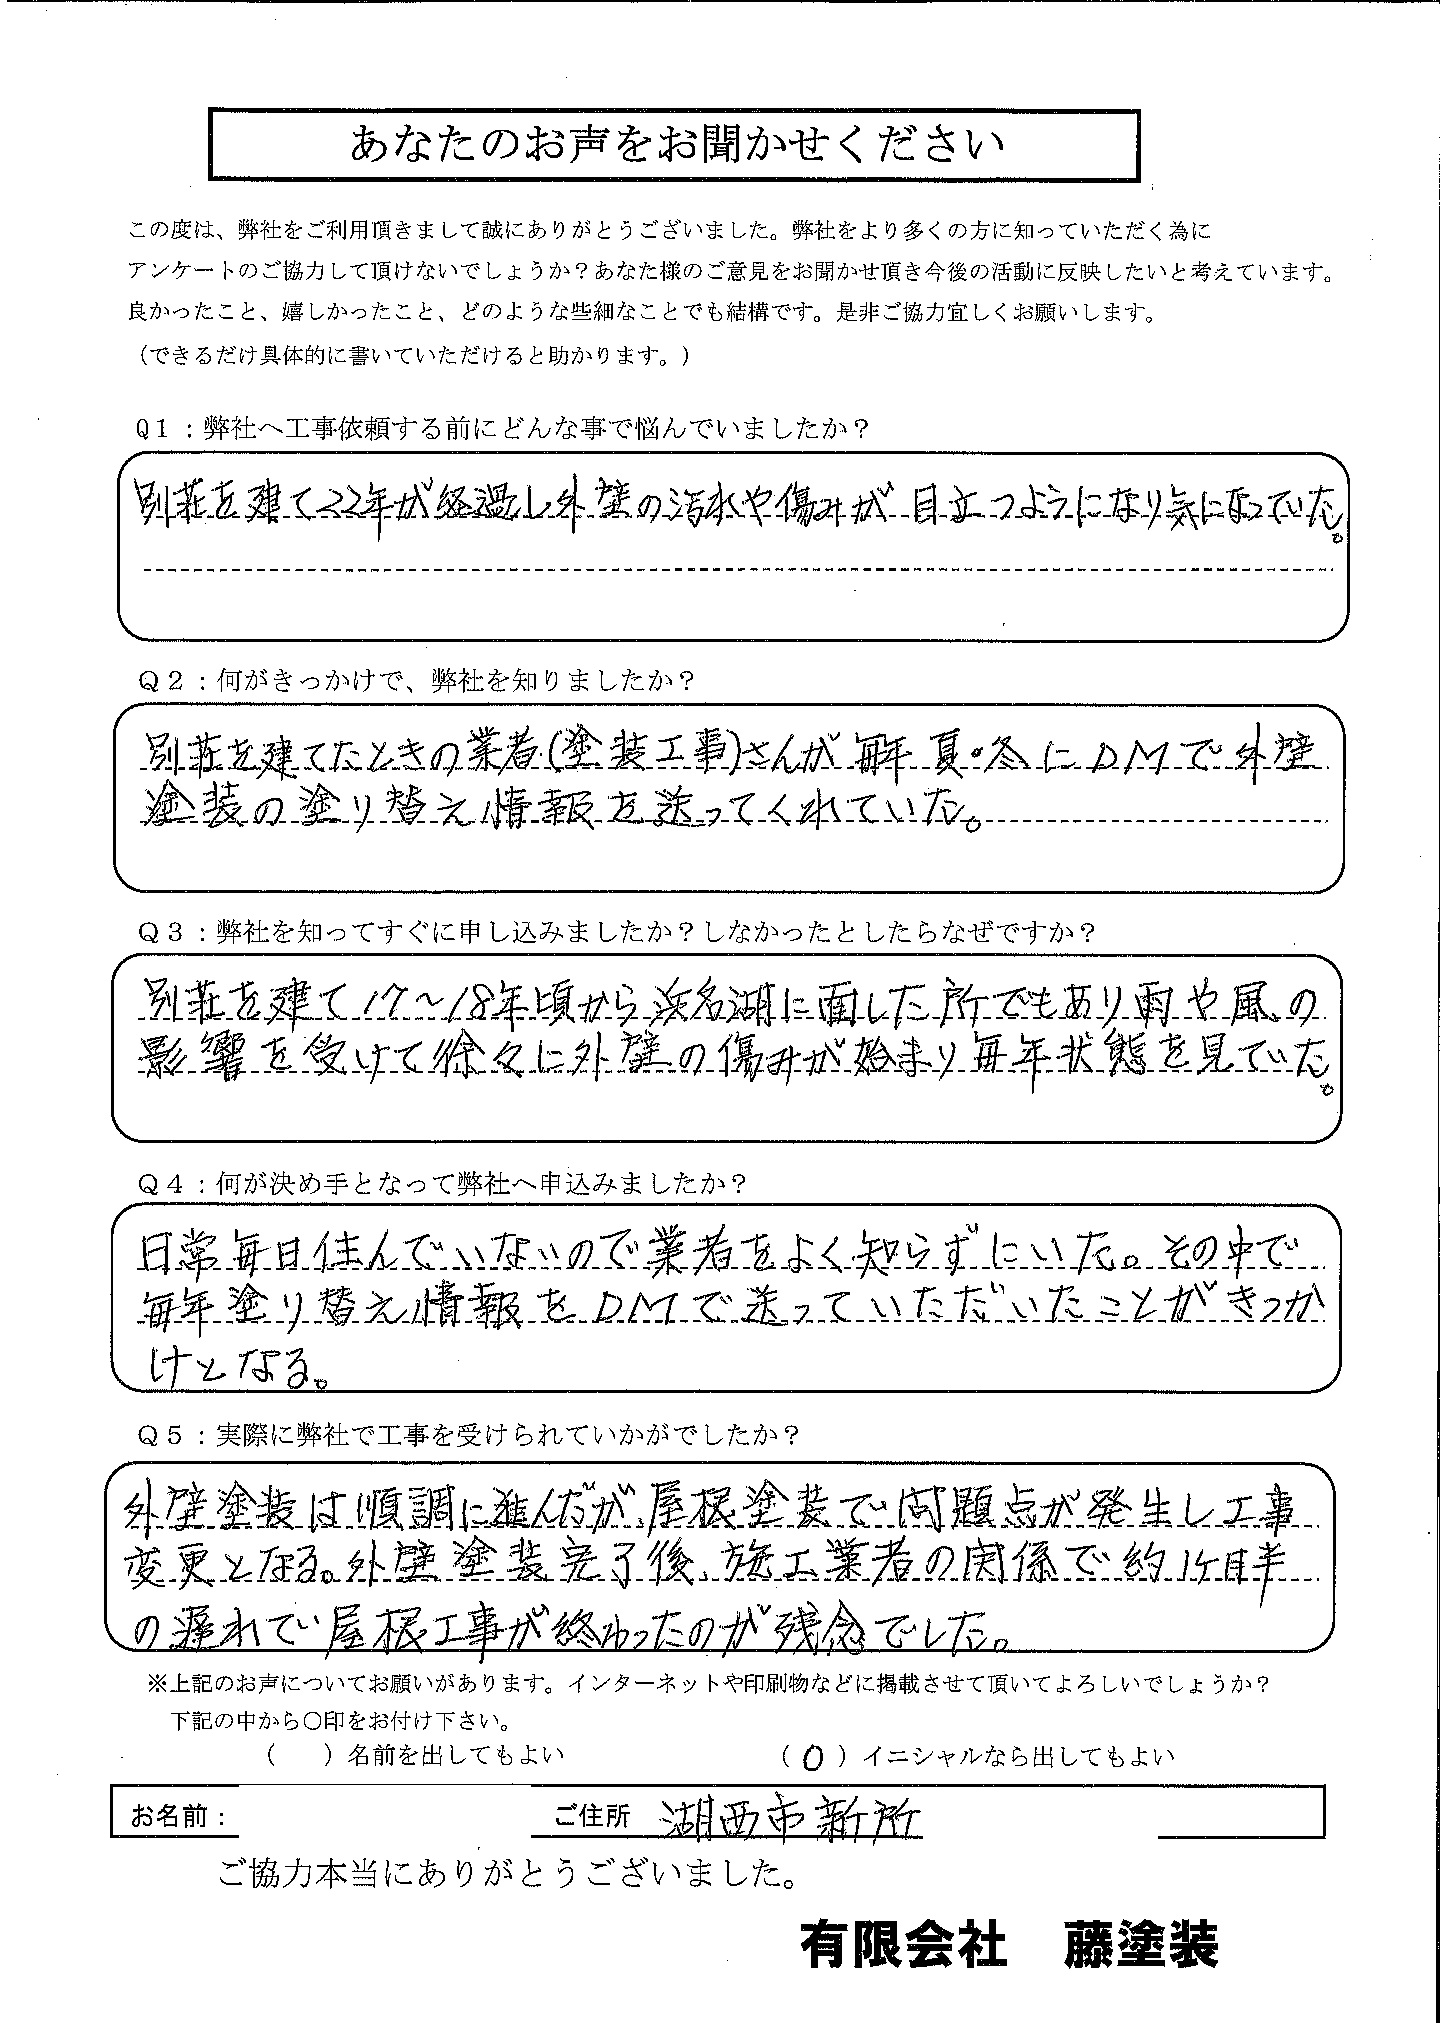 あなたのお声をお聞かせください
この度は、弊社をご利用頂きまして誠にありがとうございました。弊社をより多くの方に知っていただく為に
アンケートのご協力して頂けないでしょうか？あなた様のご意見をお聞かせ頂き今後の活動に反映したいと考えています。
良かったこと、嬉しかったこと、どのような些細なことでも結構です。是非ご協力宜しくお願いします。
（できるだけ具体的に書いていただけると助かります。）
Ｑ１：弊社へ工事依頼する前にどんな事で悩んでいましたか？
別荘を建て22年が経過し外壁の汚れや傷みが目立つようになり気になっていた。
Ｑ２：何がきっかけで、弊社を知りましたか？
別荘を建てたときの業者(塗装工事)さんが毎年夏・冬にDMで外壁
塗装の塗り替え情報を送ってくれていた。
Ｑ３：弊社を知ってすぐに申し込みましたか？しなかったとしたらなぜですか？
別荘を建て17〜18年頃から浜名湖に面した所でもあり雨や風の
影響を受けて徐々に外壁の傷みが始まり毎年状態を見ていた。
Ｑ４：何が決め手となって弊社へ申込みましたか？
日常毎日住んでいないので業者をよく知らずにいた。その中で
毎年塗り替え情報をDMで送っていただいたことがきっか
けとなる。
Ｑ５：実際に弊社で工事を受けられていかがでしたか？
外壁塗装は順調に進んだが、屋根塗装で問題点が発生し工事
変更となる。外壁塗装完了後、施工業者の関係で約1ヶ月半
の遅れで屋根工事が終わったのが残念でした。
※上記のお声についてお願いがあります。インターネットや印刷物などに掲載させて頂いてよろしいでしょうか？
下記の中から〇印をお付け下さい。
（　　）名前を出してもよい　（ O ）イニシャルなら出してもよい
お名前：　ご住所　湖西市新所
ご協力本当にありがとうございました。
有限会社　藤塗装